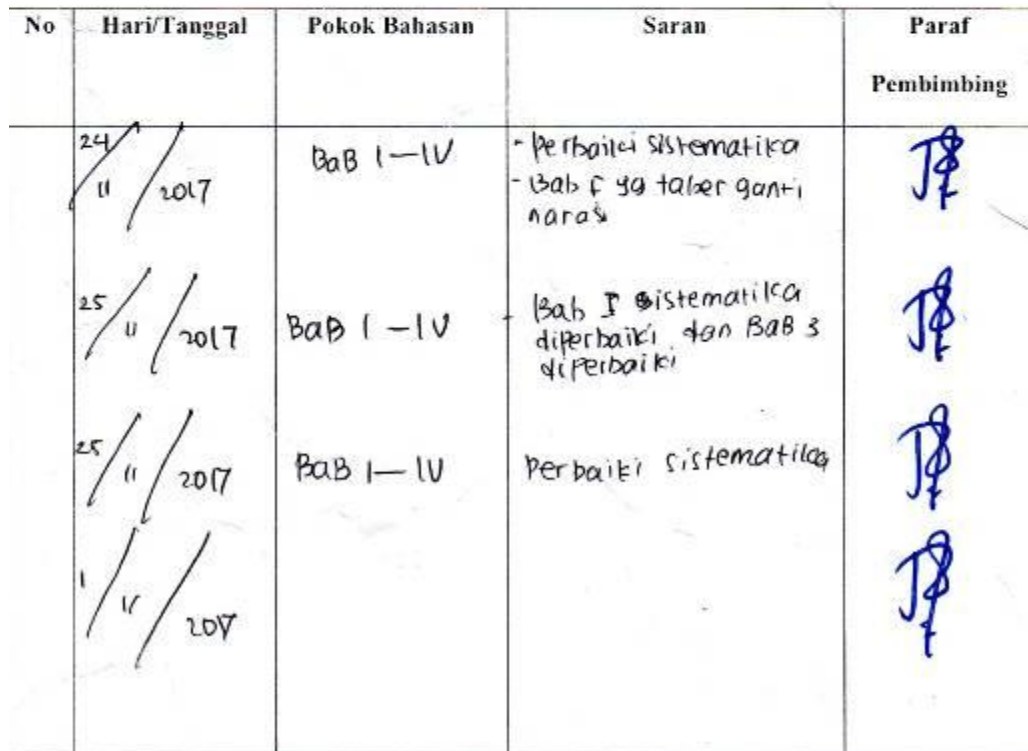 No Hari/Tanggal Pokok Bahasan Saran Paraf
Pembimbing
24/11/2017 BaB I-IV - Perbaiki Sistematika
- Bab I yg tabel ganti
narasi
25/11/2017 BaB I-IV - Bab I sistematika
diperbaiki dan BaB 3
diperbaiki
25/11/2017 BaB I-IV Perbaiki sistematika
1/11/2017